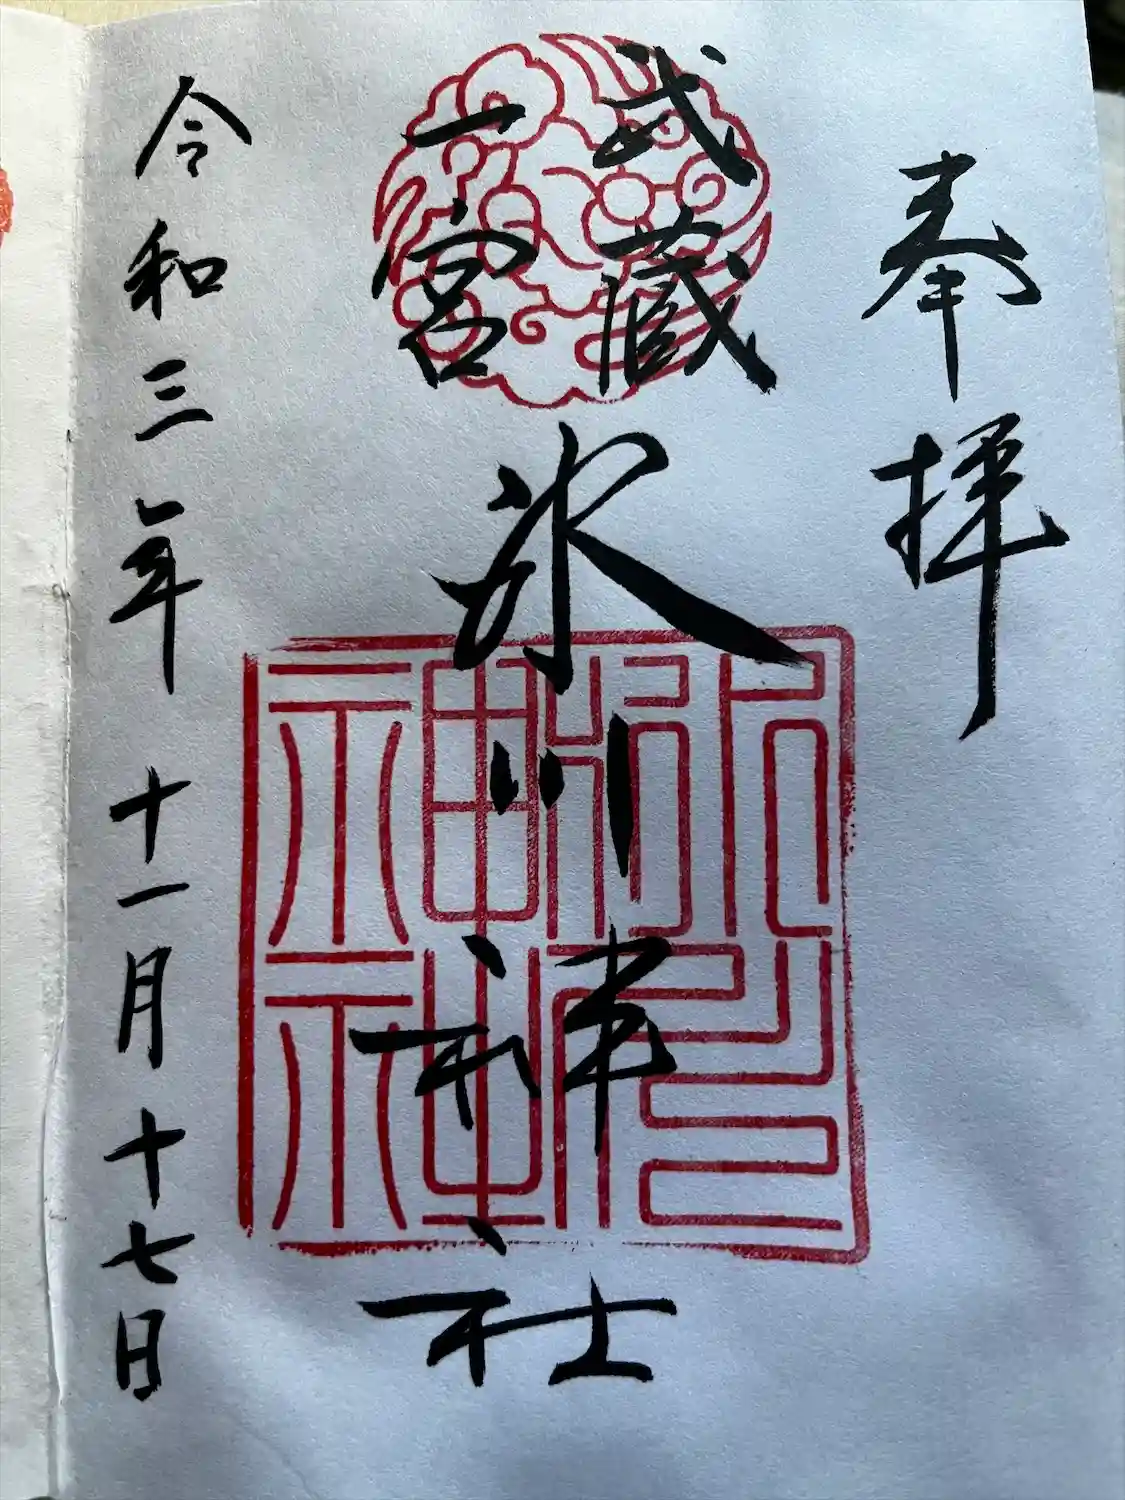 奉拝
武蔵
一宮
氷川神社
令和三年十一月十七日
氷川神社